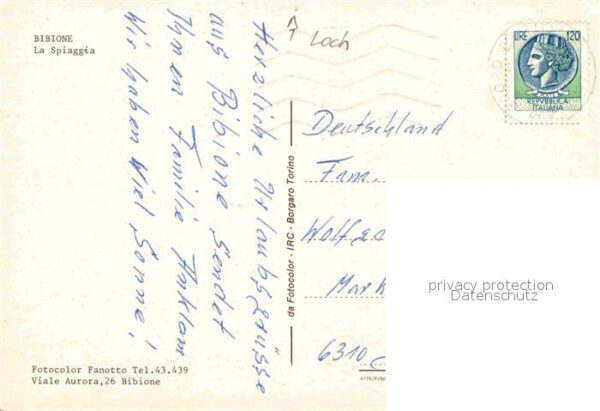 BIBIONE
La Spiaggia
Loch
LIRE 120
REPVBBLICA
ITALIANA
Herzliche Urlaubsgrüsse
aus Bibione sendet
Ihnen Familie Anklam
Wir haben viel Sonne!
da Fotocolor - IRC - Borgaro Torino
Deutschland
Fam.
Wolfga
Mark
6310
privacy protection
Datenschutz
Fotocolor Fanotto Tel.43.439
Viale Aurora,26 Bibione